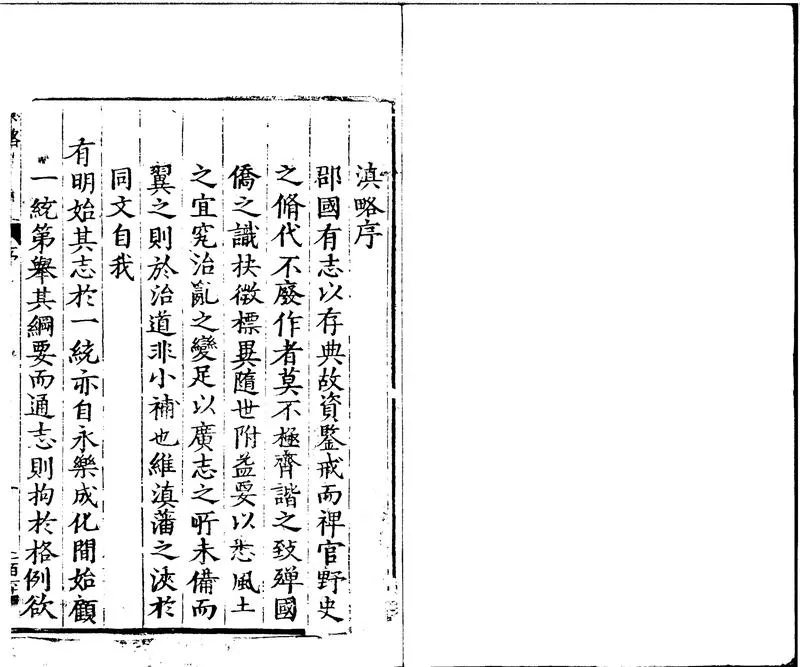 滇略序
郡國有志以存典故資鑒戒而稗官野史
之脩代不廢作者莫不極齊諧之致殫國
僑之識扶徵標異隨世附益要以悉風土
之宜究治亂之變足以廣志之所未備而
翼之則於治道非小補也維滇藩之浹於
同文自我
有明始其志於一統亦自永樂成化間始顧
一統第舉其綱要而通志則拘於格例欲